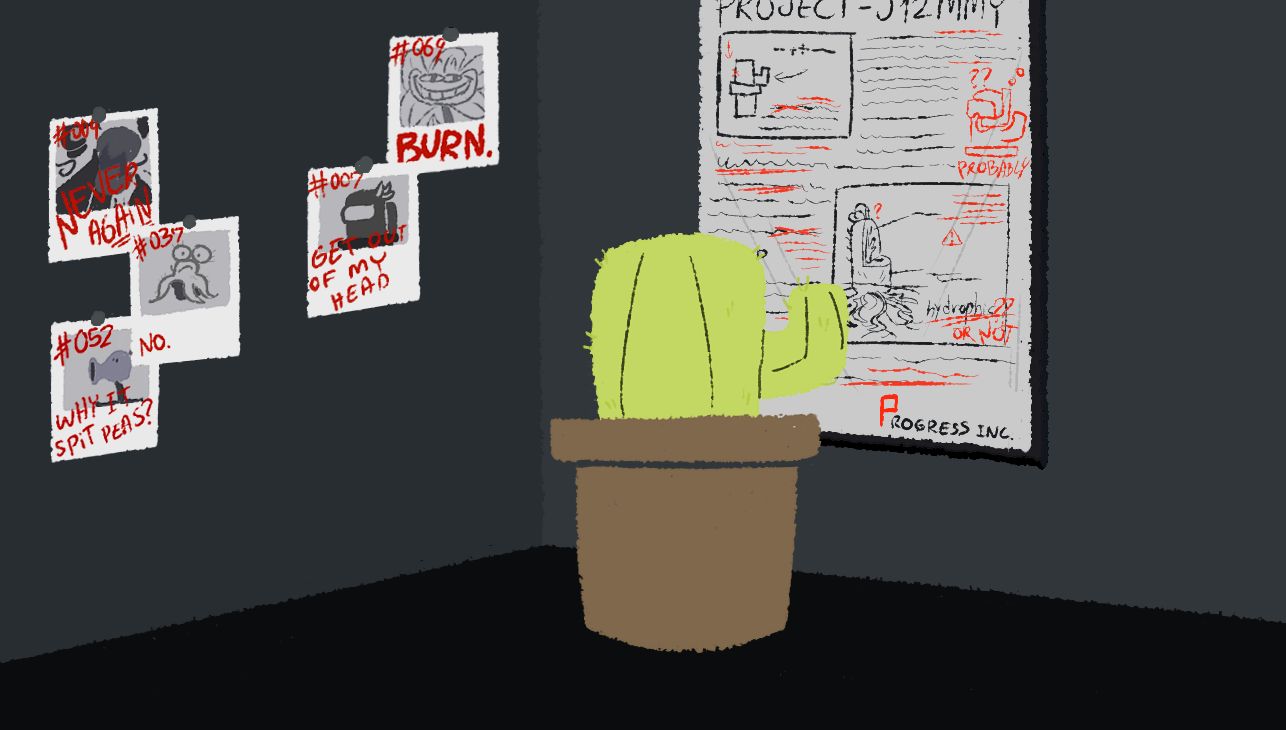 #009
NEVER
AGAIN
#037
NO.
#052
WHY IT
SPIT PEAS?
#007
GET OUT
OF MY
HEAD
#069
BURN.
PROJECT-J12MMY
??
PROBABLY
?
hydrophic??
OR NOT
PROGRESS INC.